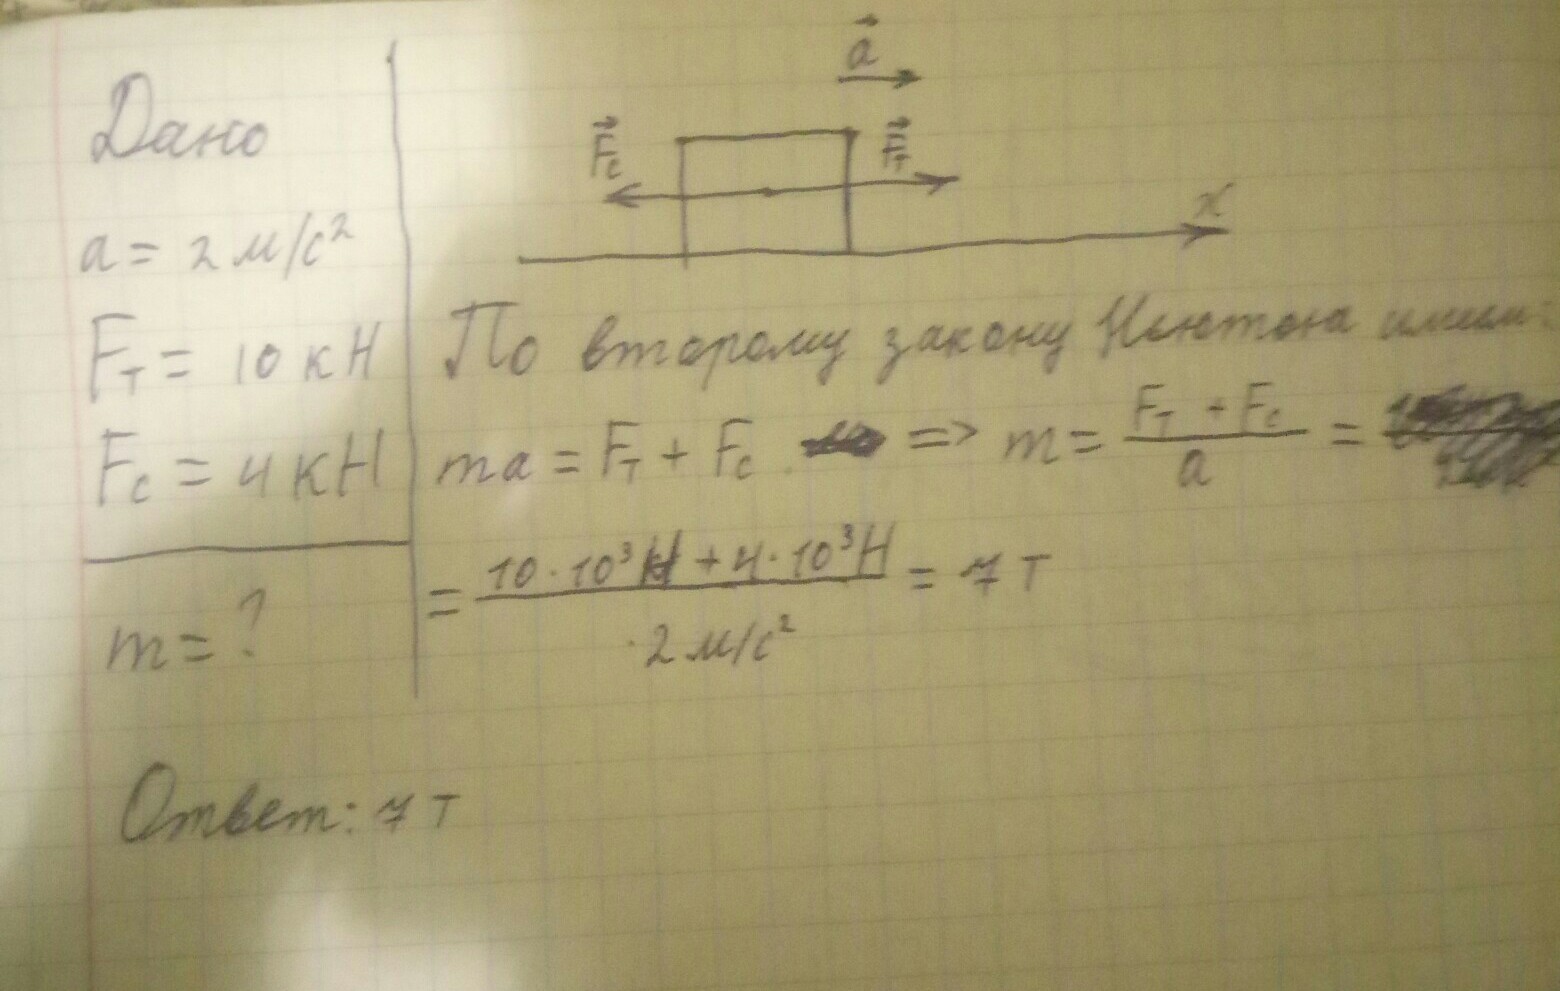 Дано
a = 2 м/с²
Fт = 10 кН
Fс = 4 кН
m = ?
a
Fс
Fт
x
По второму закону Ньютона имеем:
ma = Fт + Fс => m = (Fт + Fс)/a =
= (10·10³Н + 4·10³Н)/(2 м/с²) = 7 т
Ответ: 7 т